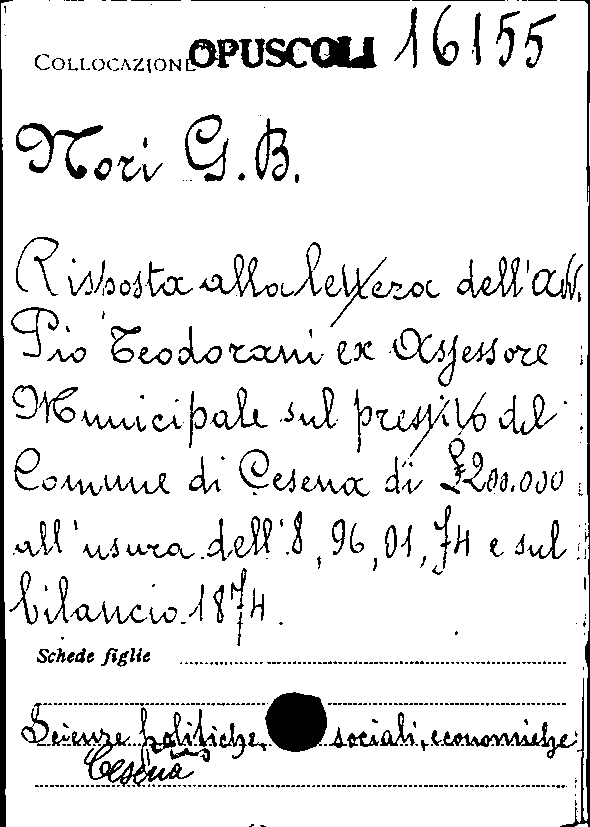 COLLOCAZIONE OPUSCOLI 16155
Nori G.B.
Risposta alla lettera dell'avv.
Pio Teodorani ex Assessore
Municipale sul prestito del
Comune di Cesena di £200.000
all'usura dell'8,96,01,74 e sul
bilancio 1874.
Schede figlie
Scienze politiche, sociali, economiche
Cesena